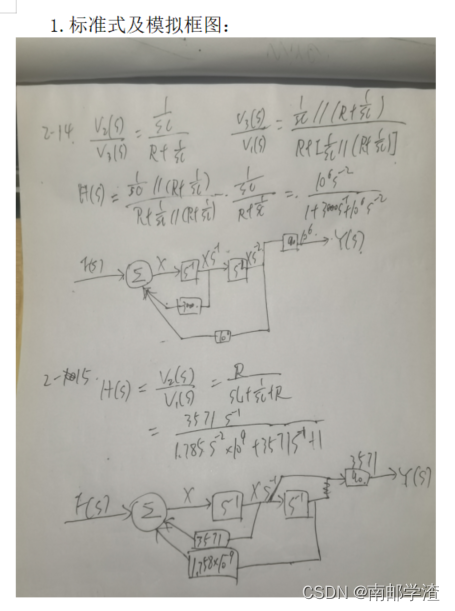 1.标准式及模拟框图：
2-14 V₂(s)/V₃(s) = (1/sc)/(R+1/sc)  V₃(s)/V₁(s) = (1/sc // (R+1/sc))/(R+[1/sc // (R+1/sc)])
H(s) = (1/sc // (R+1/sc))/(R+1/sc // (R+1/sc)) · (1/sc)/(R+1/sc) = 10⁶s⁻²/(1+3000s⁻¹+10⁶s⁻²)
F(s) Σ X s⁻¹ Xs⁻¹ s⁻¹ Xs⁻² 10⁶ Y(s)
2-15. H(s) = V₂(s)/V₁(s) = R/(sL+1/sc+R)
= 3571 s⁻¹/(1.785 s⁻²×10⁹+3571s⁻¹+1)
3571
F(s) Σ X s⁻¹ Xs⁻¹ s⁻¹ a₀ Y(s)
3571
1.758×10⁹
CSDN @南邮学渣